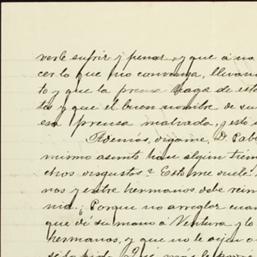 verle sufrir y penar, y que á na
cer lo que no convenga, llevan
to y que la prensa haga de esto
ta y que el buen nombre de su
esa prensa malvada, y esto s
Además, dígame, D. Pab
mismo asunto haw algun tiem
otros disgustos? Esto me suele
nos y entre hermanos debe rein
nia. ¿Porqué no arreglar cuan
que dé su mano á Ventura y lo
hermanos, y que no se dijan a